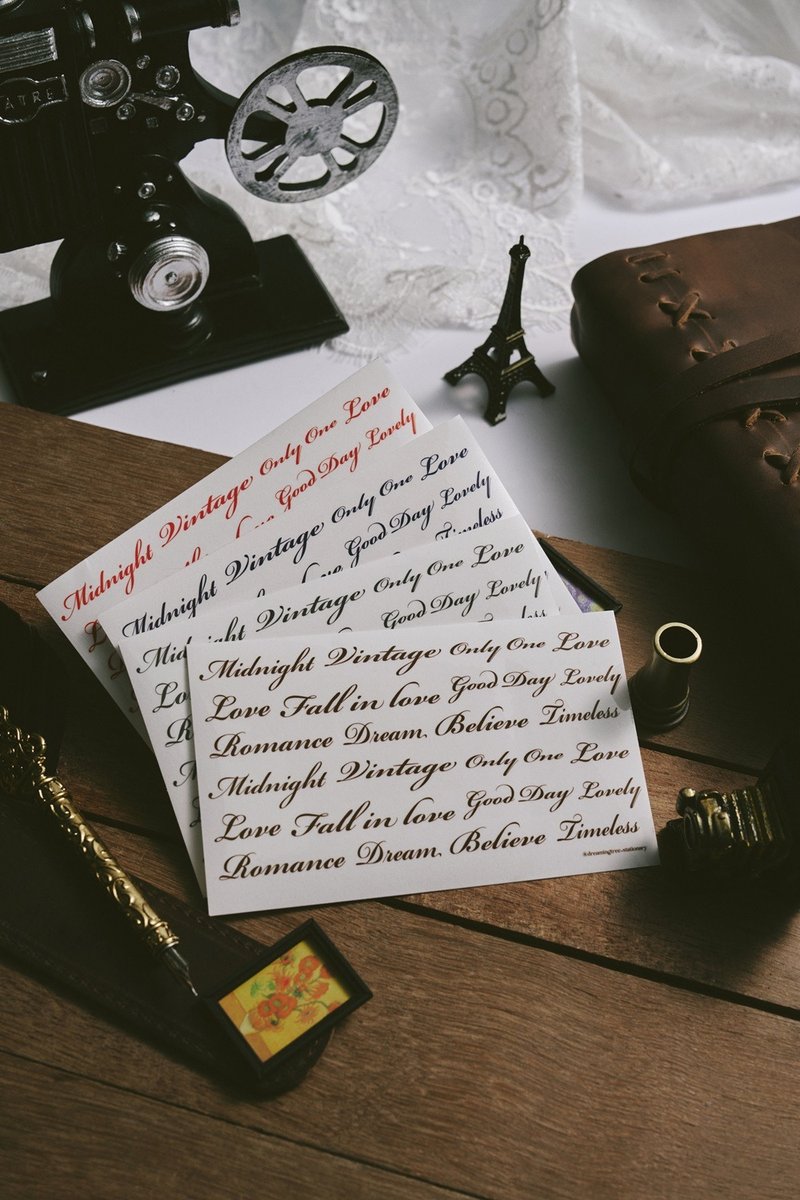 ATRE
Midnight Vintage Only One Love
Good Day Lovely
Midnight Vintage Only One Love
Good Day Lovely
Timeless
Midnight Vintage Only One Love
Good Day Lovely
Midnight Vintage Only One Love
Love Fall in love Good Day Lovely
Romance Dream Believe Timeless
Midnight Vintage Only One Love
Love Fall in love Good Day Lovely
Romance Dream Believe Timeless
@dreamingtree.stationery